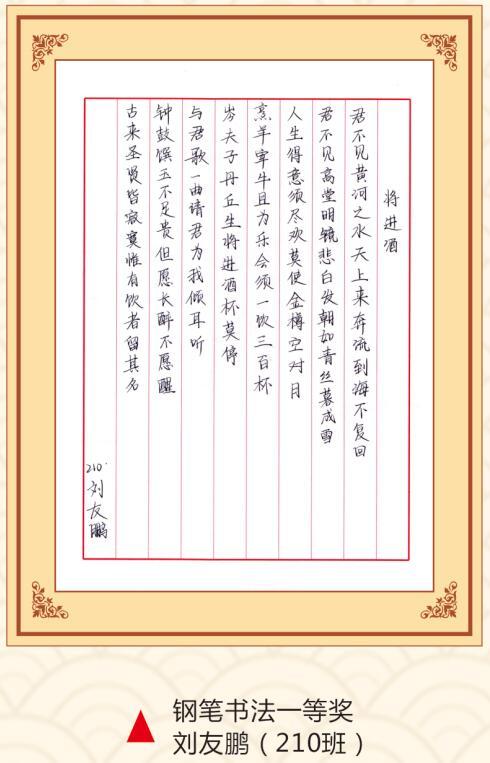 将进酒
君不见黄河之水天上来奔流到海不复回
君不见高堂明镜悲白发朝如青丝暮成雪
人生得意须尽欢莫使金樽空对月
烹羊宰牛且为乐会须一饮三百杯
岑夫子丹丘生将进酒杯莫停
与君歌一曲请君为我倾耳听
钟鼓馔玉不足贵但愿长醉不愿醒
古来圣贤皆寂寞惟有饮者留其名
210.刘友鹏
钢笔书法一等奖
刘友鹏（210班）